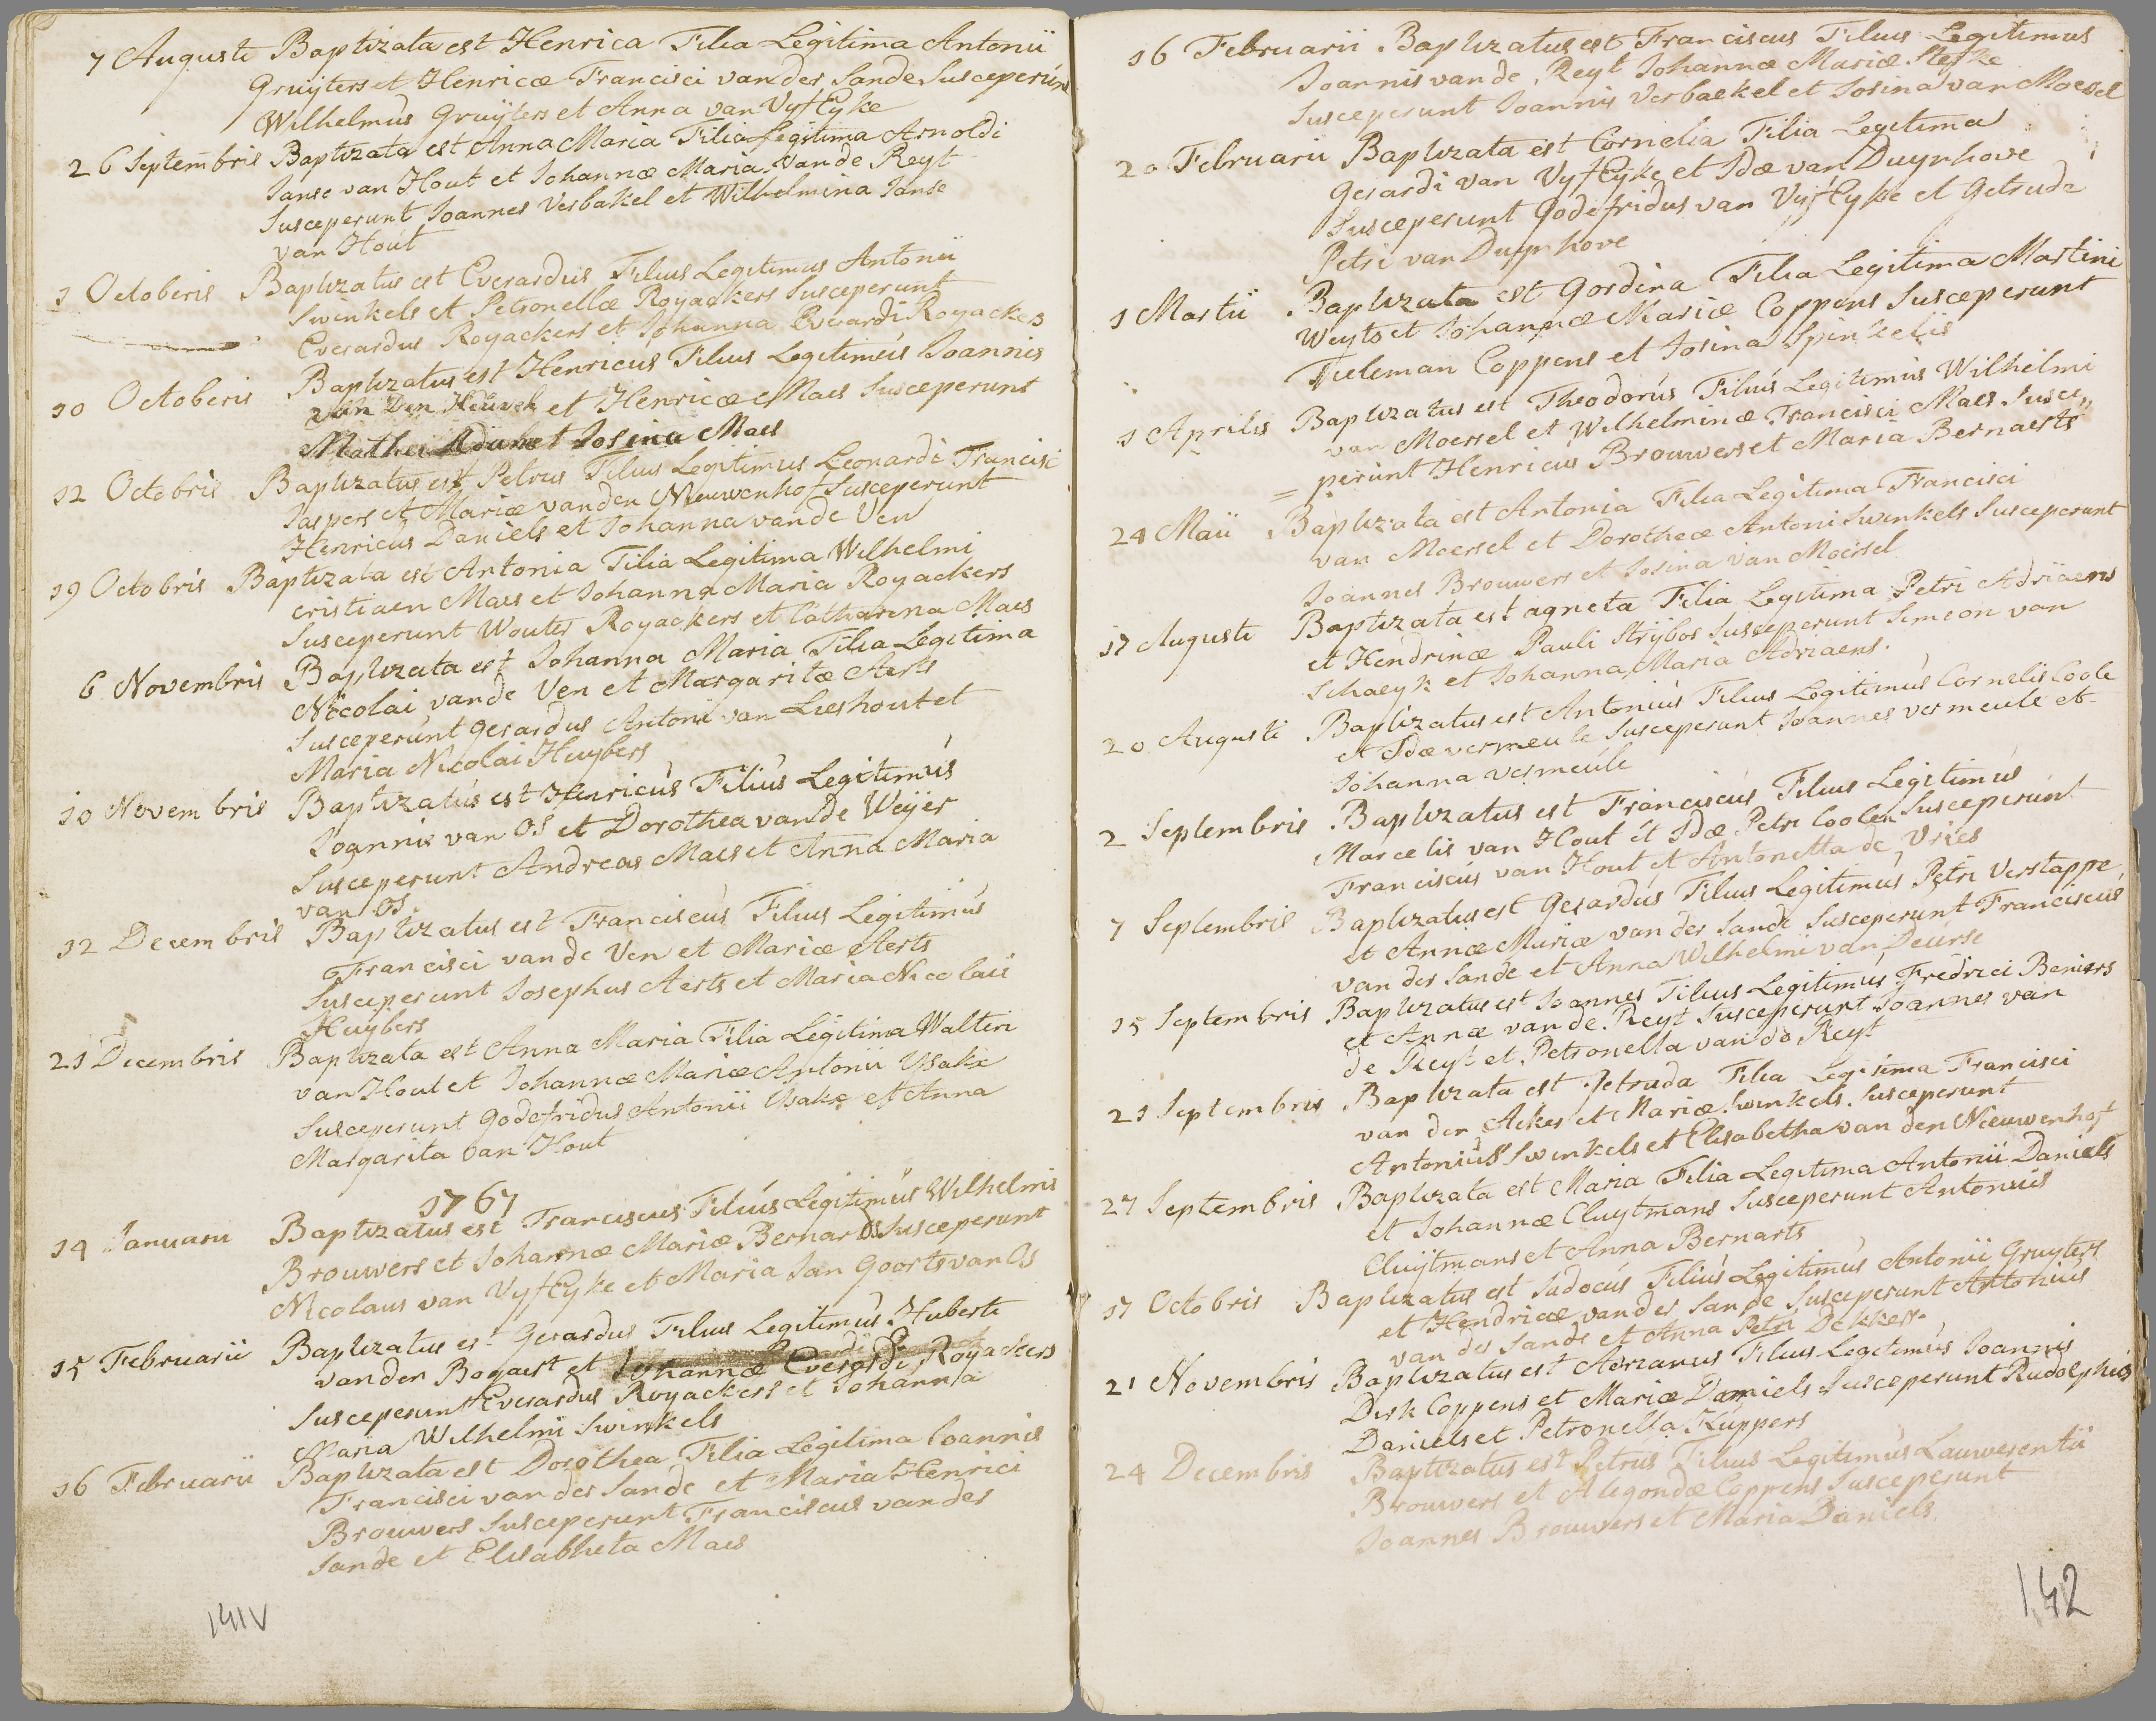 7 Augusti Baptizata est Henrica Filia Legitima Antonii
Gruÿters et Henricæ Francisci van der Sande Susceperunt
Wilhelmus Gruÿters et Anna van VyfEyke
26 Septembris Baptizata est Anna Maria Filia Legitima Arnoldi
Janse van Hout et Johannæ Maria van de Reyt
Susceperunt Joannes Verbakel et Wilhelmina Janse
van Hout
1 Octoberis Baptizatus est Everardus Filius Legitimus Antonii
Swinkels et Petronellæ Royackers Susceperunt
Everardus Royackers et Johanna Everardi Royackers
10 Octoberis Baptizatus est Henricus Filius Legitimus Joannis
van Den Heuvel et Henricæ Maes Susceperunt
Mathei et Josina Maes
12 Octobris Baptizatus est Petrus Filius Legitimus Leonardi Francisci
Jaspers et Mariæ van den Nieuwenhof Susceperunt
Henricus Daniels et Johanna van de Ven
19 Octobris Baptizata est Antonia Filia Legitima Wilhelmi
cristiaen Maes et Johanna Maria Royackers
Susceperunt Wouter Royackers et Catharina Maes
6 Novembris Baptizata est Johanna Maria Filia Legitima
Nicolai vande Ven et Margaritæ Aerts
Susceperunt Gerardus Antonii van Lieshout et
Maria Nicolai Huybers
10 Novembris Baptizatus est Henricus Filius Legitimus
Joannis van OS et Dorothea vande Weÿer
Susceperunt Andreas Maes et Anna Maria
van OS.
12 Decembris Baptizatus est Franciscus Filius Legitimus
Francisci vande Ven et Mariæ Aerts
Susceperunt Josephus Aerts et Maria Nicolaii
Huÿbers
21 Decembris Baptizata est Anna Maria Filia Legitima Walteri
van Hout et Johannæ Mariæ Antonii Vsake
Susceperunt Godefridus Antonii Vsake et Anna
Margarita van Hout
1767
14 Januarii Baptizatus est Franciscus Filius Legitimus Wilhelmis
Brouwers et Johannæ Mariæ Bernards Susceperunt
Nicolaus van VyfEyke et Maria Jan Goorts van Os
15 Februarii Baptizatus est Gerardus Filius Legitimus Huberti
van den Bogaert et Johannæ Everardi Royackers
Susceperunt Everardus Royackers et Johanna
Maria Wilhelmi Swinkels
16 Februarii Baptizata est Dorothea Filia Legitima Joannis
Francisci van der Sande et Maria Henrici
Brouwers Susceperunt Franciscus van der
Sande et Elisabheta Maes
141V
16 Februarii Baptizatus est Franciscus Filius Legitimus
Joannis van de Reyt Johannæ Mariæ
Susceperunt Joannis Verbaekel et Josina van Moesel
20 Februarii Baptizata est Cornelia Filia Legitima
Gerardi van VyfEyke et Idæ van Duynhove
Susceperunt Godefridus van VyfEyke et Getrude
Petri van Duynhove
1 Martii Baptizata est Gordina Filia Legitima Martini
Weyts et Johannæ Mariæ Coppens Susceperunt
Tieleman Coppens et Josina Spinkelis
1 Aprilis Baptizatus est Theodorus Filius Legitimus Wilhelmi
van Moersel et Wilhelminæ Francisci Maes Susce„
= perunt Henricus Brouwers et Maria Bernaerts
24 Maii Baptizata est Antonia Filia Legitima Francisci
van Moersel et Dorotheæ Antoni Swinkels Susceperunt
Joannes Brouwers et Josina van Moersel
17 Augusti Baptizata est agneta Filia Legitima Petri Adriaens
et Hendrinæ Pauli Strijbos Susceperunt Simeon van
Schaeyk et Johanna Maria Adriaens.
20 Augusti Baptizatus est Antonius Filius Legitimus Cornelis Coole
et Idæ vermeule Susceperunt Joannes vermeule et
Johanna vermeule
2 Septembris Baptizatus est Franciscus Filius Legitimus
Marcelis van Hout et Idæ Petri Coolen Susceperunt
Franciscus van Hout et Antonetta de Vries
7 Septembris Baptizatus est Gerardus Filius Legitimus Petri Verstappe
et Annæ Mariæ van der Sande Susceperunt Franciscus
van der Sande et Anna Wilhelmi van Deurse
15 Septembris Baptizatus est Joannes Filius Legitimus Fredrici Beniers
et Annæ van de Reyt Susceperunt Joannes van
de Reyt et Petronella van de Reyt
21 Septembris Baptizata est Jetruda Filia Legitima Francisci
van den Acker et Mariæ Swinkels Susceperunt
Antonius Swinkels et Elisabetha van den Nieuwenhof
27 Septembris Baptizata est Maria Filia Legitima Antonii Daniels
et Johannæ Cluytmans Susceperunt Antonius
Cluÿtmans et Anna Bernarts
17 Octobris Baptizatus est Judocus Filius Legitimus Antonii Gruyters
et Hendricæ van der Sande Susceperunt Antonius
van der Sande et Anna Petri Dekkers.
21 Novembris Baptizatus est Adrianus Filius Legitimus Joannis
Dirk Coppens et Mariæ Daniels Susceperunt Rudolphus
Daniels et Petronella Kuppers
24 Decembris Baptizatus est Petrus Filius Legitimus Lauwerentii
Brouwers et Alegondæ Coppens Susceperunt
Joannes Brouwers et Maria Daniels
142